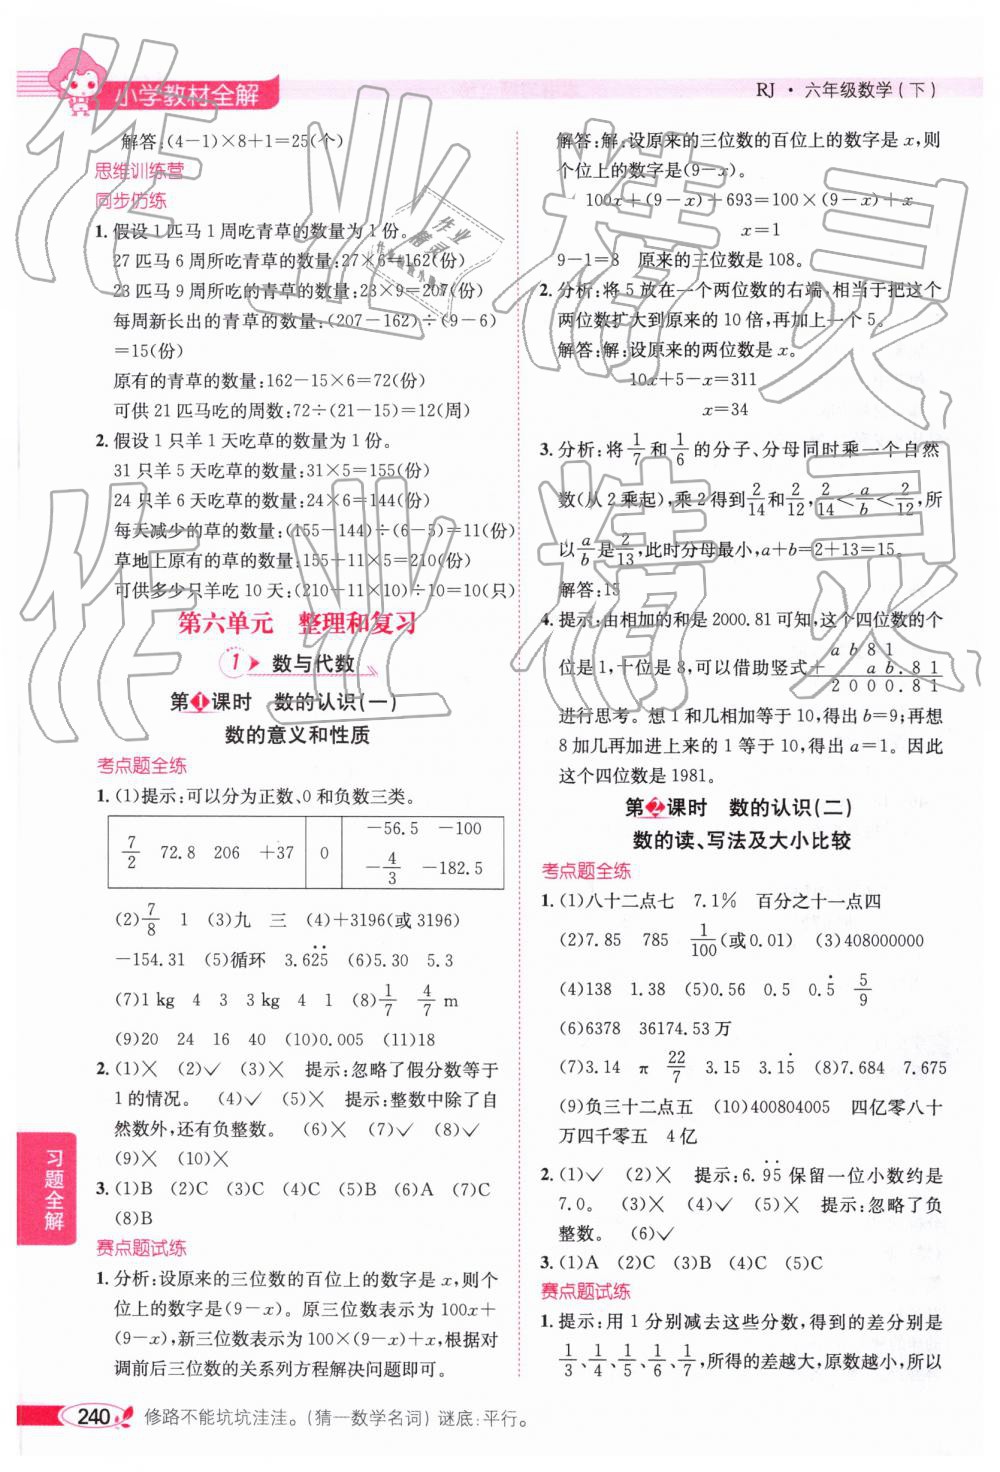 小学教材全解
RJ·六年级数学(下)
解答:(4－1)×8＋1＝25(个)
思维训练营
同步仿练
1. 假设 1 匹马 1 周吃青草的数量为 1 份。
27 匹马 6 周所吃青草的数量:27×6＝162(份)
23 匹马 9 周所吃的青草的数量:23×9＝207(份)
每周新长出的青草的数量:(207－162)÷(9－6)
＝15(份)
原有的青草的数量:162－15×6＝72(份)
可供 21 匹马吃的周数:72÷(21－15)＝12(周)
2. 假设 1 只羊 1 天吃草的数量为 1 份。
31 只羊 5 天吃草的数量:31×5＝155(份)
24 只羊 6 天吃草的数量:24×6＝144(份)
每天减少的草的数量:(155－144)÷(6－5)＝11(份)
草地上原有的草的数量:155＋11×5＝210(份)
可供多少只羊吃 10 天:(210＋11×10)÷10＝10(只)
第六单元 整理和复习
1 数与代数
第1课时 数的认识(一)
数的意义和性质
考点题全练
1. (1)提示:可以分为正数、0 和负数三类。
7/2 72.8 206 ＋37 0 －56.5 －100
－4/3 －182.5
(2)7/8 1 (3)九 三 (4)＋3196(或 3196)
－154.31 (5)循环 3.6̇25̇ (6)5.30 5.3
(7)1 kg 4 3 3 kg 4 1 (8)1/7 4/7 m
(9)20 24 16 40 (10)0.005 (11)18
2. (1)× (2)✓ (3)× 提示:忽略了假分数等于
1 的情况。 (4)✓ (5)× 提示:整数中除了自
然数外,还有负整数。 (6)× (7)✓ (8)✓
(9)× (10)×
3. (1)B (2)C (3)C (4)B (5)B (6)A (7)C
(8)B
赛点题试练
1. 分析:设原来的三位数的百位上的数字是 x,则个
位上的数字是(9－x)。原三位数表示为 100x＋
(9－x),新三位数表示为 100×(9－x)＋x,根据对
调前后三位数的关系列方程解决问题即可。
解答:解:设原来的三位数的百位上的数字是 x,则
个位上的数字是(9－x)。
100x＋(9－x)＋693＝100×(9－x)＋x
x＝1
9－1＝8 原来的三位数是 108。
2. 分析:将 5 放在一个两位数的右端,相当于把这个
两位数扩大到原来的 10 倍,再加上一个 5。
解答:解:设原来的两位数是 x。
10x＋5－x＝311
x＝34
3. 分析:将1/7和1/6的分子、分母同时乘一个自然
数(从 2 乘起),乘 2 得到2/14和2/12,2/14＜a/b＜2/12,所
以a/b是2/13,此时分母最小,a＋b＝2＋13＝15。
解答:15
4. 提示:由相加的和是 2000.81 可知,这个四位数的个
位是 1,十位是 8,可以借助竖式
a b 8 1
＋ a b. 8 1
2 0 0 0. 8 1
进行思考。想 1 和几相加等于 10,得出 b＝9;再想
8 加几再加进上来的 1 等于 10,得出 a＝1。因此
这个四位数是 1981。
第2课时 数的认识(二)
数的读、写法及大小比较
考点题全练
1. (1)八十二点七 7.1% 百分之十一点四
(2)7.85 785 1/100(或 0.01) (3)408000000
(4)138 1.38 (5)0.56 0.5 0.5̇ 5/9
(6)6378 36174.53 万
(7)3.14 π 22/7 3.15 3.15̇ (8)7.684 7.675
(9)负三十二点五 (10)400804005 四亿零八十
万四千零五 4 亿
2. (1)✓ (2)× 提示:6.9̇5̇ 保留一位小数约是
7.0。 (3)× (4)✓ (5)× 提示:忽略了负
整数。 (6)✓
3. (1)A (2)C (3)B (4)C (5)C
赛点题试练
1. 提示:用 1 分别减去这些分数,得到的差分别是
1/3、1/4、1/5、1/6、1/7,所得的差越大,原数越小,所以
习题全解
240 修路不能坑坑洼洼。(猜一数学名词) 谜底:平行。
作业精灵
作业精灵